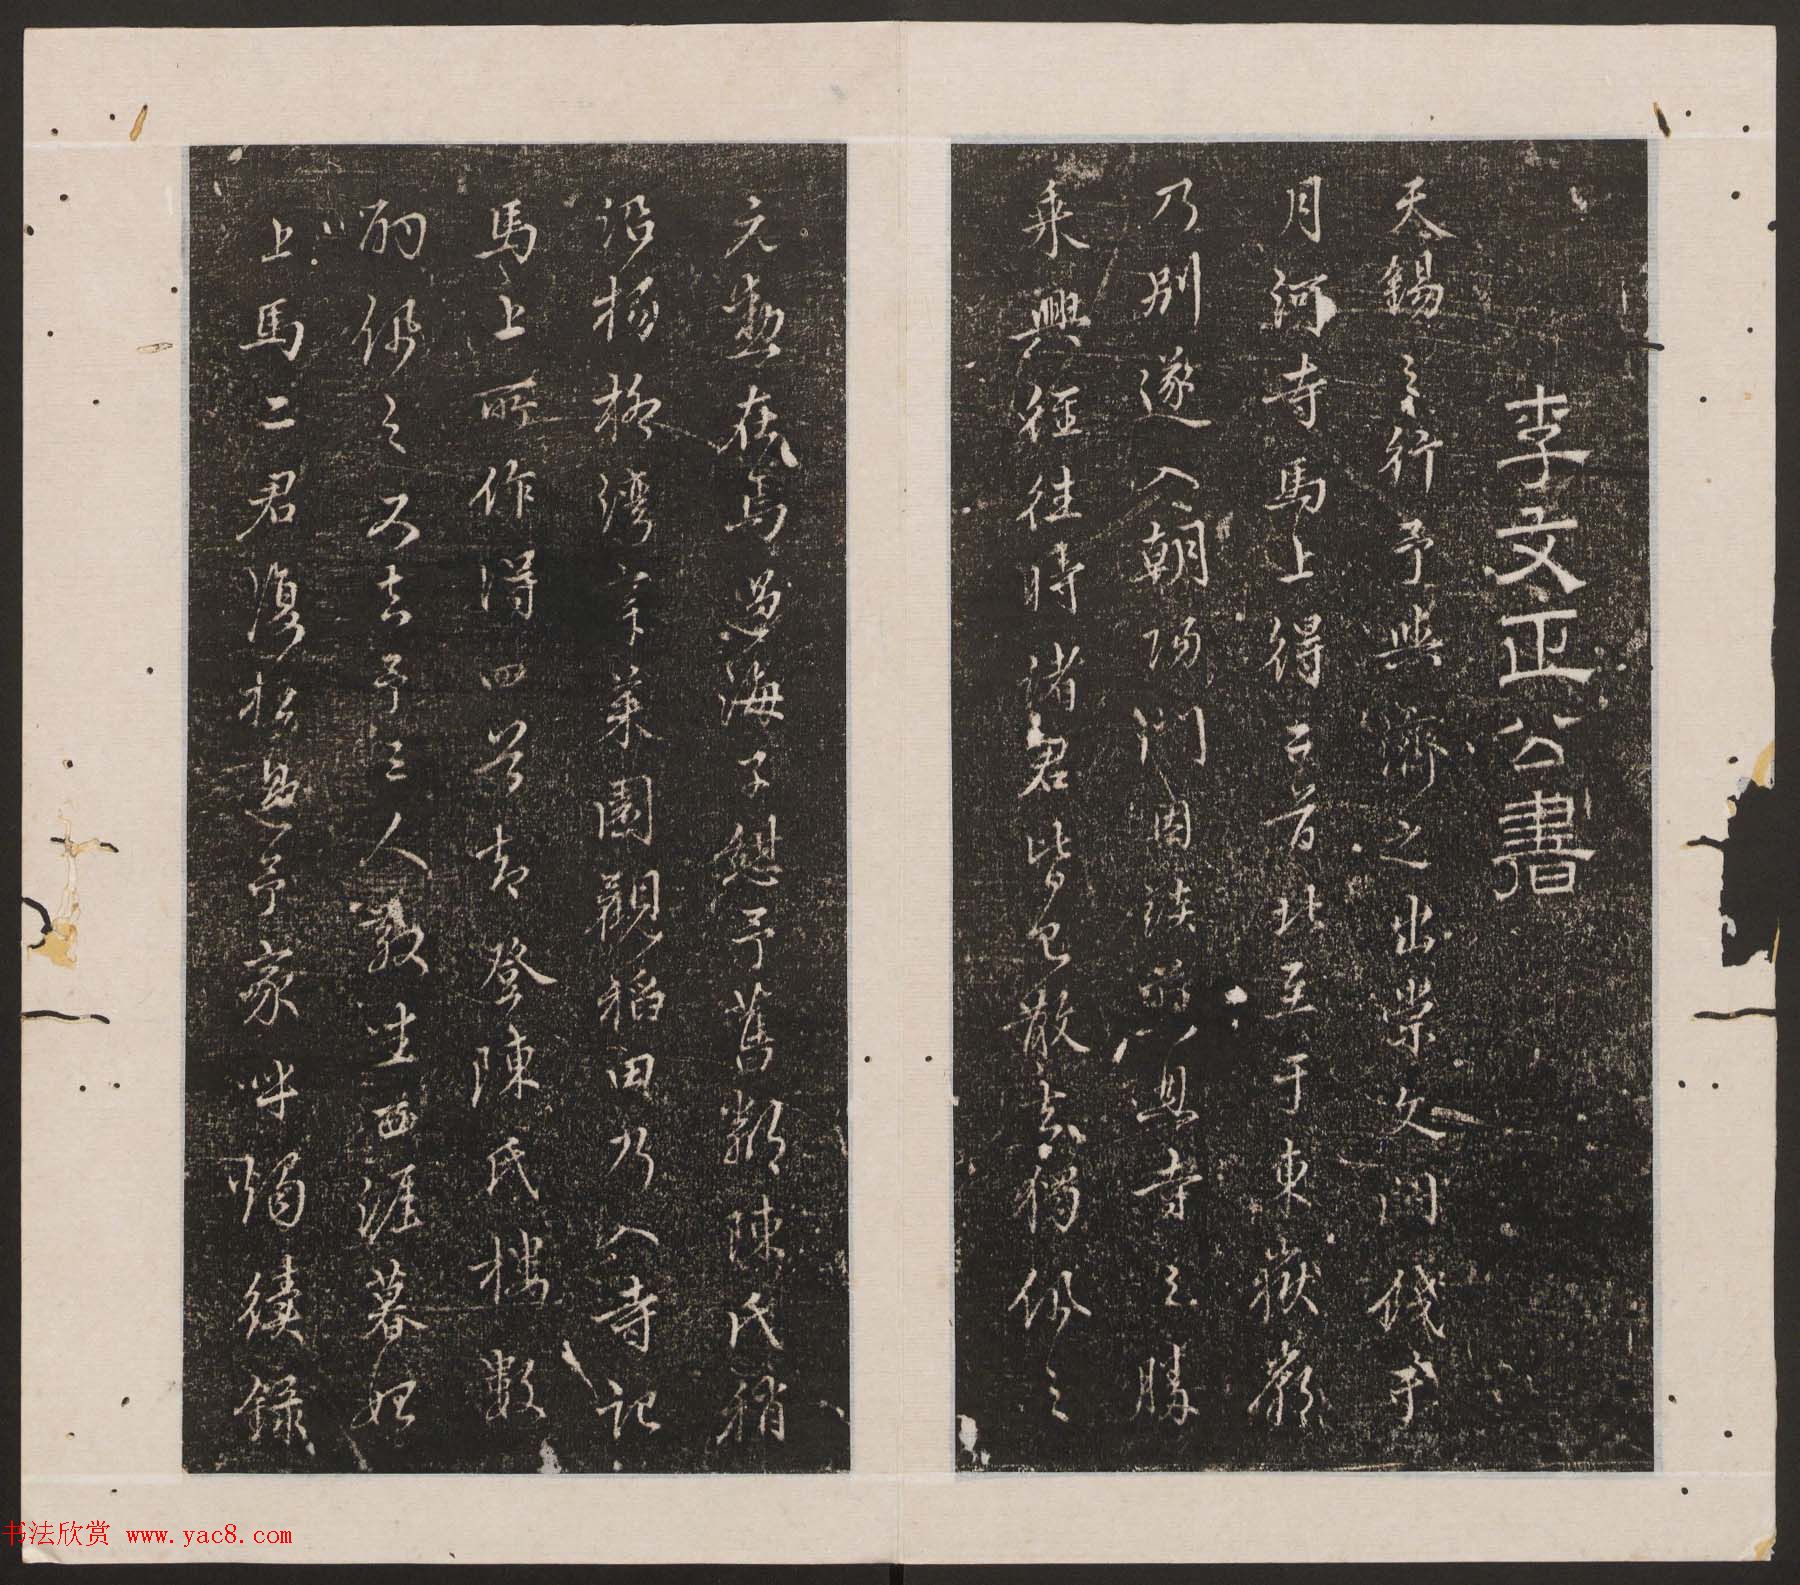 李文正公書
天錫之行予與濟之出崇文門餞于
月河寺馬上得五首北至于東嶽廟
乃別遂入朝陽門因談慈恩寺之勝
乘興徑往時諸君皆已散去獨佩之
元勳在焉過海子憩予舊鄰陳氏稍
沿楊柳灣 菜園觀稻田乃入寺記
馬上所作得四首 登陳氏樓數
酌佩之又去予三人散坐西涯暮始
上馬二君復松過予家呼燭續錄
书法欣赏 www.yac8.com